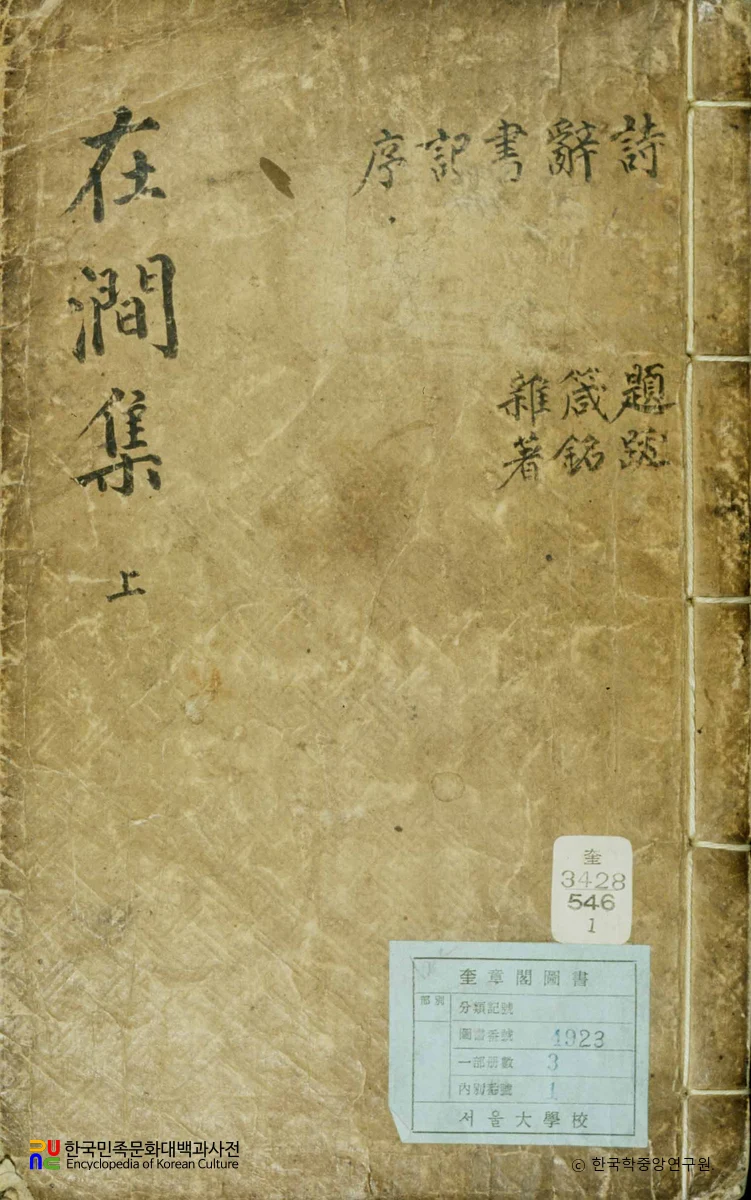 在澗集 上
詩 辭 書 記 序
題跋 箴銘 雜著
奎
3428
546
1
奎章閣圖書
部別
分類記號
圖書番號 4923
一部册數 3
內別番號 1
서울大學校
한국민족문화대백과사전
Encyclopedia of Korean Culture
© 한국학중앙연구원